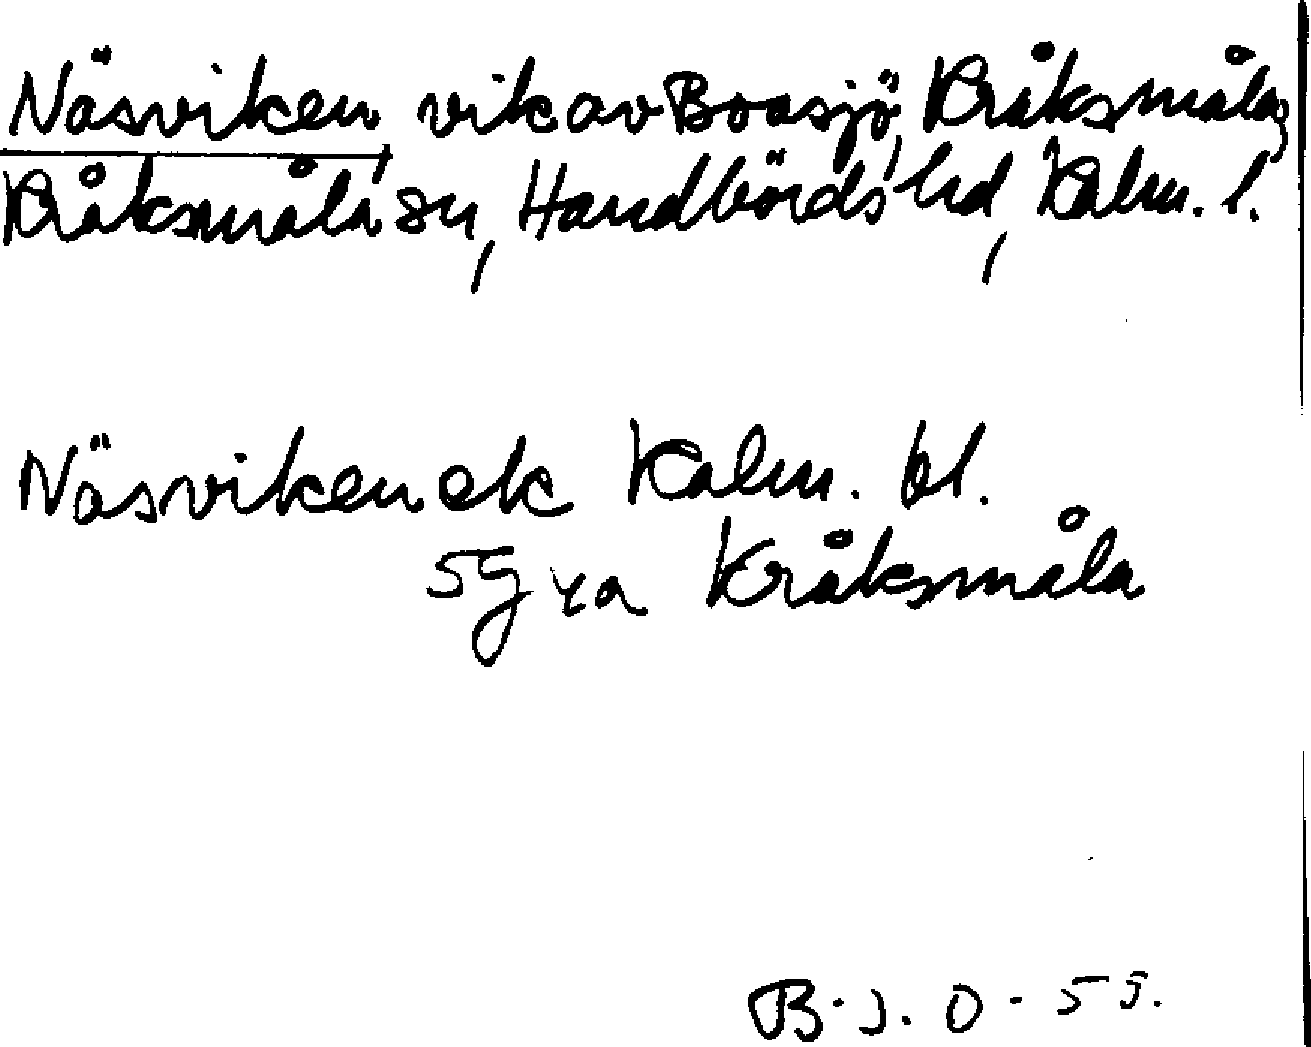 Näsviken, vik av Boasjö, Kråksmåla,
Kråksmåla sn, Handbörds hd, Kalm. l.
Näsviken ek Kalm. bl.
Kråksmåla
B. J. O - 55.